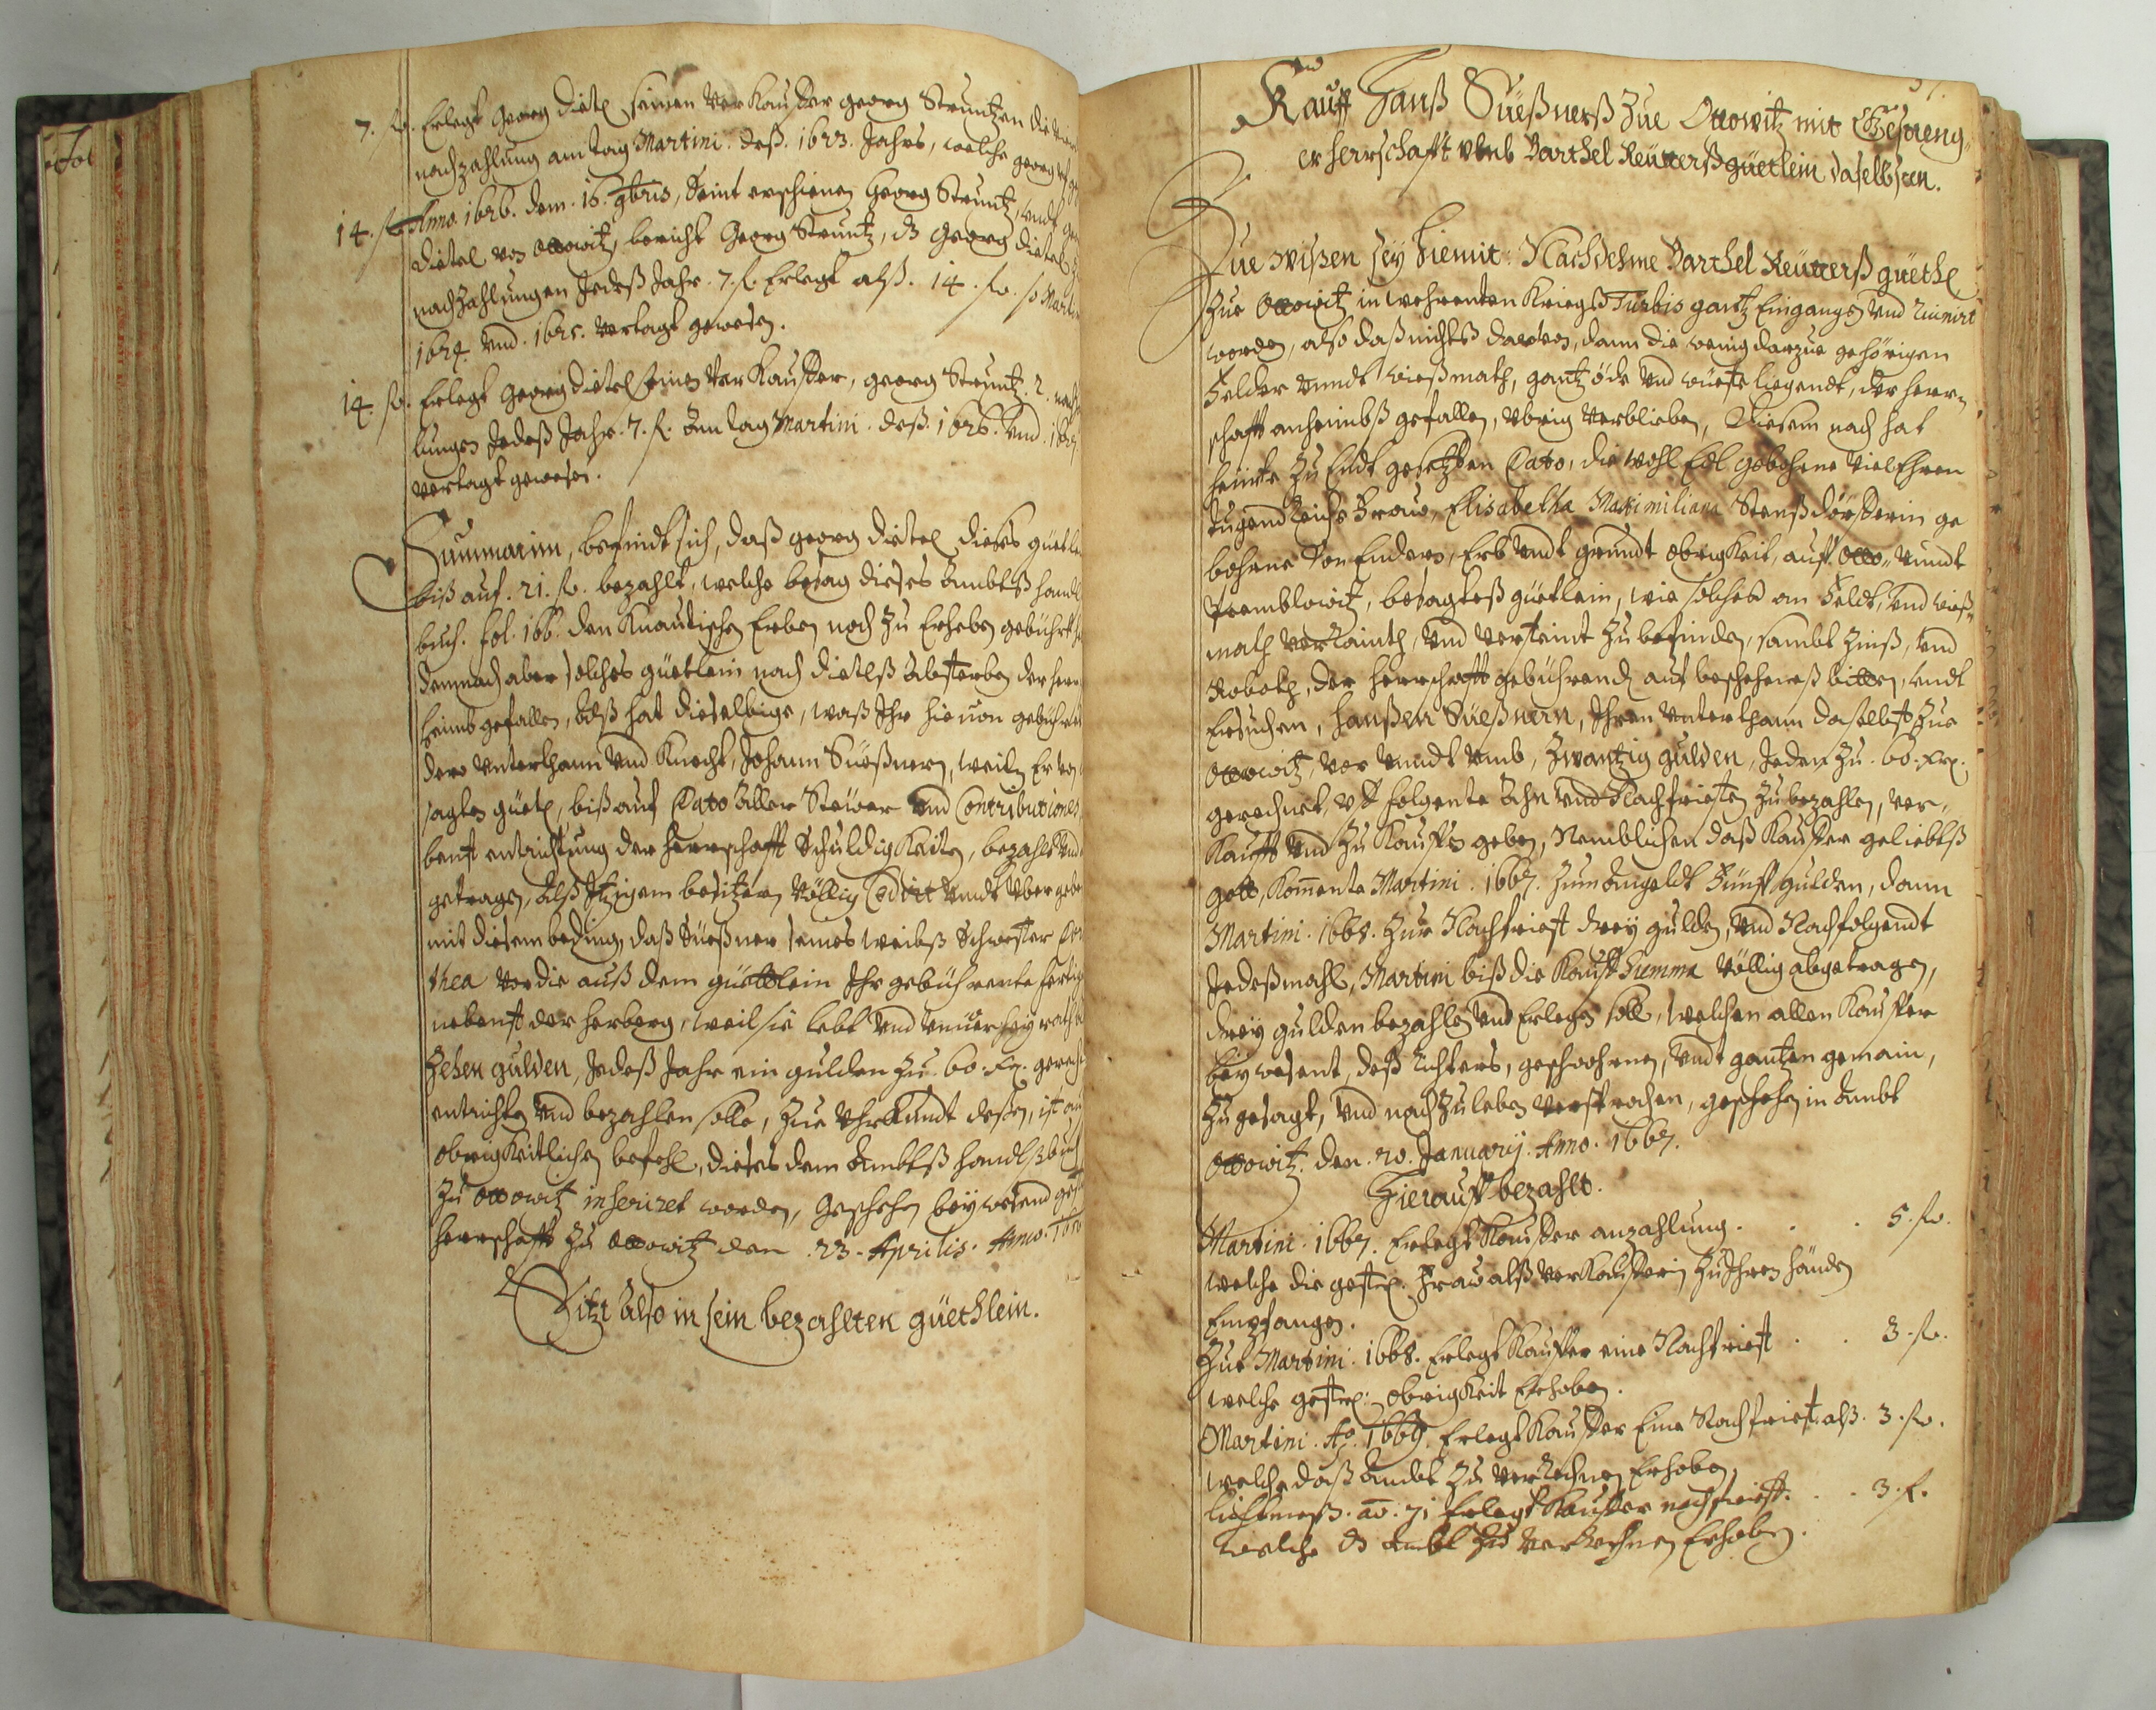 Fol
7. fl. Erlegt Georg Dietl seinen Verkauffer Georg Steuntzen die
nachzahlung am tag Martini. deß. 1623. Jahrs, welche Georg
14. fl. Anno. 1626. dem. 16. 9bris, Seint erschienen Georg Steuntz, undt
Dietel von Ottowitz, bericht Georg Steuntz, dz Georg Dietel
nachzahlungen Jedeß Jahr. 7. fl. Erlegt alß. 14. fl. so Martini
1624. Und. 1625. Vertagt gewesen.
14. fl. Erlegt Georg Dietel seinen Verkauffer, Georg Steuntz. 2.
lungen Jedeß Jahr. 7. fl. Am tag Martini. deß. 1626. Und. 1627
Vertagt gewesen.
Summarim, befindt sich, daß Georg Dietel dieses güetl
biß auf. 21. fl. bezahlt, welche besag dieses Ambtß handl
buch. fol. 166. den Knautischen Erben noch zu Erheben gebührt
demnach aber solches güetlein nach Dietelß Absterben der herr
heimb gefallen, Alß hat dieselbige, waß Ihr hievon gebührt
dero Unterthann Und Knecht, Johann Süeßnern, weiln Er von
sagten güetl, biß auf Dato Aller Steüer Und Contributiones
benst entrichtung der Herrschafft Schuldigkeiten, bezahlt Und
getragen, Alß Itzigem besitzern Völlig Cedirt Undt Vbergeben
mit diesem beding, daß Süeßner seines Weibß Schwester Doro
thea Vor die auß dem güettlein Ihr gebührente
nebenst der herberg, weil sie lebt Und Unverheyrath
Zehen gulden, Jedeß Jahr ein gulden zu. 60. Kr. gerech
entrichten Und bezahlen solle, Zue Uhrkundt deßen, ist auf
Obrigkeitlichen befehl, dieses dem Ambtß handlßbuch
Zu Ottowitz inserirt worden, Geschehen beywesend
herrschafft zu Ottowitz den. 23. Aprilis. Anno.
Sitzt also in sein bezahlten güethlein.
37.
Kauff Hanß Süeßnerß Zue Ottowitz mit Gestreng
er herrschafft Umb Barthel Reütterß güetlein daselbsten.
Zue wißen sey hiemit: Nachdehme Barthel Reütterß güethl
Zue Ottowitz in wehrenten Kriegß Turbis gantz Eingangen Und Ruinirt
worden, also daß nichtß darvon, dann die wenig darzue gehörigen
Felder Unndt Wießmath, gantz öde Und wüeste liegendt, der herr-
schafft anheimbß gefallen, Vbrig Verblieben, Diesem nach hat
heünte Zu Endt gesetzten Dato, die Wohl Edl gebohrne Viel Ehren
tugendtreiche Fraw, Elisabetha Maximiliana Stenßdörfferin ge
bohrne Von Enders, Erb Undt grundt Obrigkeit, auff Otto- Unndt
Tremblowitz, besagteß güetlein, wie solches an Feldt, Und Wieß-
math Verrainth, Und Versteint Zu befinden, sambt Zinß, Und
Roboth, der herrschafft gebührend auf beschehenes bitten, Undt
Ersuchen, Hanßen Süeßnern, Ihren Unterthann daselbst Zue
Ottowitz, Vor Unndt Umb, Zwantzig gulden, Jeden Zu. 60. Kr.
gerechnet, Uff folgente Ahn Und Nachfristen Zu bezahlen, Ver-
Kaufft Und Zu Kauffen geben, Nemblichen daß Kauffer geliebtß
Gott, Kommente Martini. 1667. Zum Angeldt Fünff gulden, dann
Martini. 1668. Zur Nachfriest drey gulden, Und Nachfolgendt
Jedeßmahl, Martini biß die Kauff Summa Völlig abgetragen,
drey gulden bezahlen Und Erlegen soll, Welchen allen Kauffer
beywesent, deß Richters, geschwohrnen, Undt gantzen gemain,
Zugesagt, Und nachzuleben Versprochen, geschehen in Ambt
Ottowitz. den. 20. January. Anno. 1667.
Hierauff bezahlt.
Martini. 1667. Erlegt Kauffer anzahlung. . . 5. fl.
welche die gestr: Fraw alß Verkaufferin Zu Ihren händen
Empfangen.
Zue Martini. 1668. Erlegt Kauffer eine Nachfriest . . 3. fl.
welche gestr: Obrigkeit Erhoben.
Martini. Ao. 1669. Erlegt Kauffer Eine Nachfriest. alß. 3. fl.
welche daß Ambt Zu Verrechnen Erhoben.
Lichtmeß. ao. 71 Erlegt Kauffer nachfrist. . . 3. f.
welche dz Ambt Zu Verrechnen Erhoben.